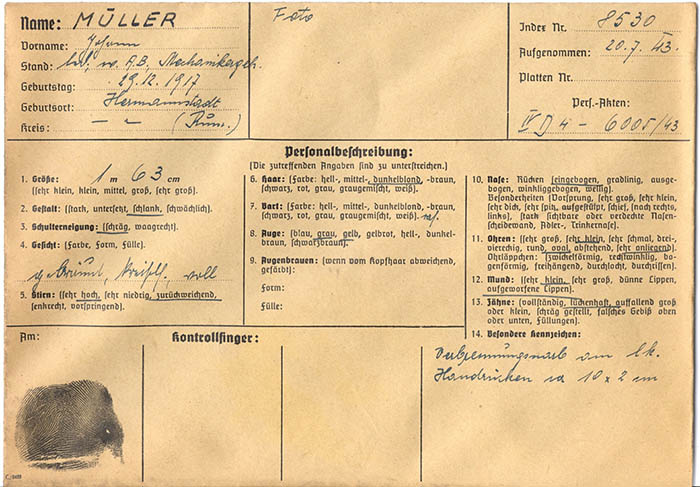 Name: MÜLLER
Vorname: Johann
Stand: led., r. A.B., Mechanikergeh.
Geburtstag: 29.12.1917
Geburtsort: Hermannstadt
Kreis: — " — (Rum.)
Foto
Index Nr. 8530
Aufgenommen: 20.7.43.
Platten Nr.
Pers.-Akten:
IV D 4 - 6005/43
Personalbeschreibung:
(Die zutreffenden Angaben sind zu unterstreichen.)
1. Größe: 1 m 63 cm
(sehr klein, klein, mittel, groß, sehr groß).
2. Gestalt: (stark, untersetzt, schlank, schwächlich).
3. Schulterneigung: (schräg, waagrecht).
4. Gesicht: (Farbe, Form, Fülle).
gebräunt, voll
5. Stirn: (sehr hoch, sehr niedrig, zurückweichend,
senkrecht, vorspringend).
6. Haar: (Farbe: hell-, mittel-, dunkelblond, -braun,
schwarz, rot, grau, graugemischt, weiß).
7. Bart: (Farbe: hell-, mittel-, dunkelblond, -braun,
schwarz, rot, grau, graugemischt, weiß).
8. Auge: (blau, grau, gelb, gelbrot, hell-, dunkel-
braun, schwarzbraun).
9. Augenbrauen: (wenn vom Kopfhaar abweichend,
gefärbt):
Form:
Fülle:
10. Nase: Rücken (eingebogen, gradlinig, ausge-
bogen, winkliggebogen, wellig).
Besonderheiten (Vorsprung, sehr groß, sehr klein,
sehr dick, sehr spitz, aufgestülpt, schief, (nach rechts,
links), stark sichtbare oder verdeckte Nasen-
scheidewand, Adler-, Trinkernase).
11. Ohren: (sehr groß, sehr klein, sehr schmal, drei-
eckig, rund, oval, abstehend, sehr anliegend).
Ohrläppchen: (zwickelförmig, rechtwinklig, bo-
genförmig, freihängend, durchlocht, durchrissen).
12. Mund: (sehr klein, sehr groß, dünne Lippen,
aufgeworfene Lippen).
13. Zähne: (vollständig, lückenhaft, auffallend groß
oder klein, schräg gestellt, falsches Gebiß oben
oder unten, Füllungen).
14. Besondere Kennzeichen:
Verbrennungsnarb am lk.
Handrücken ca 10 x 2 cm
Am:
Kontrollfinger: